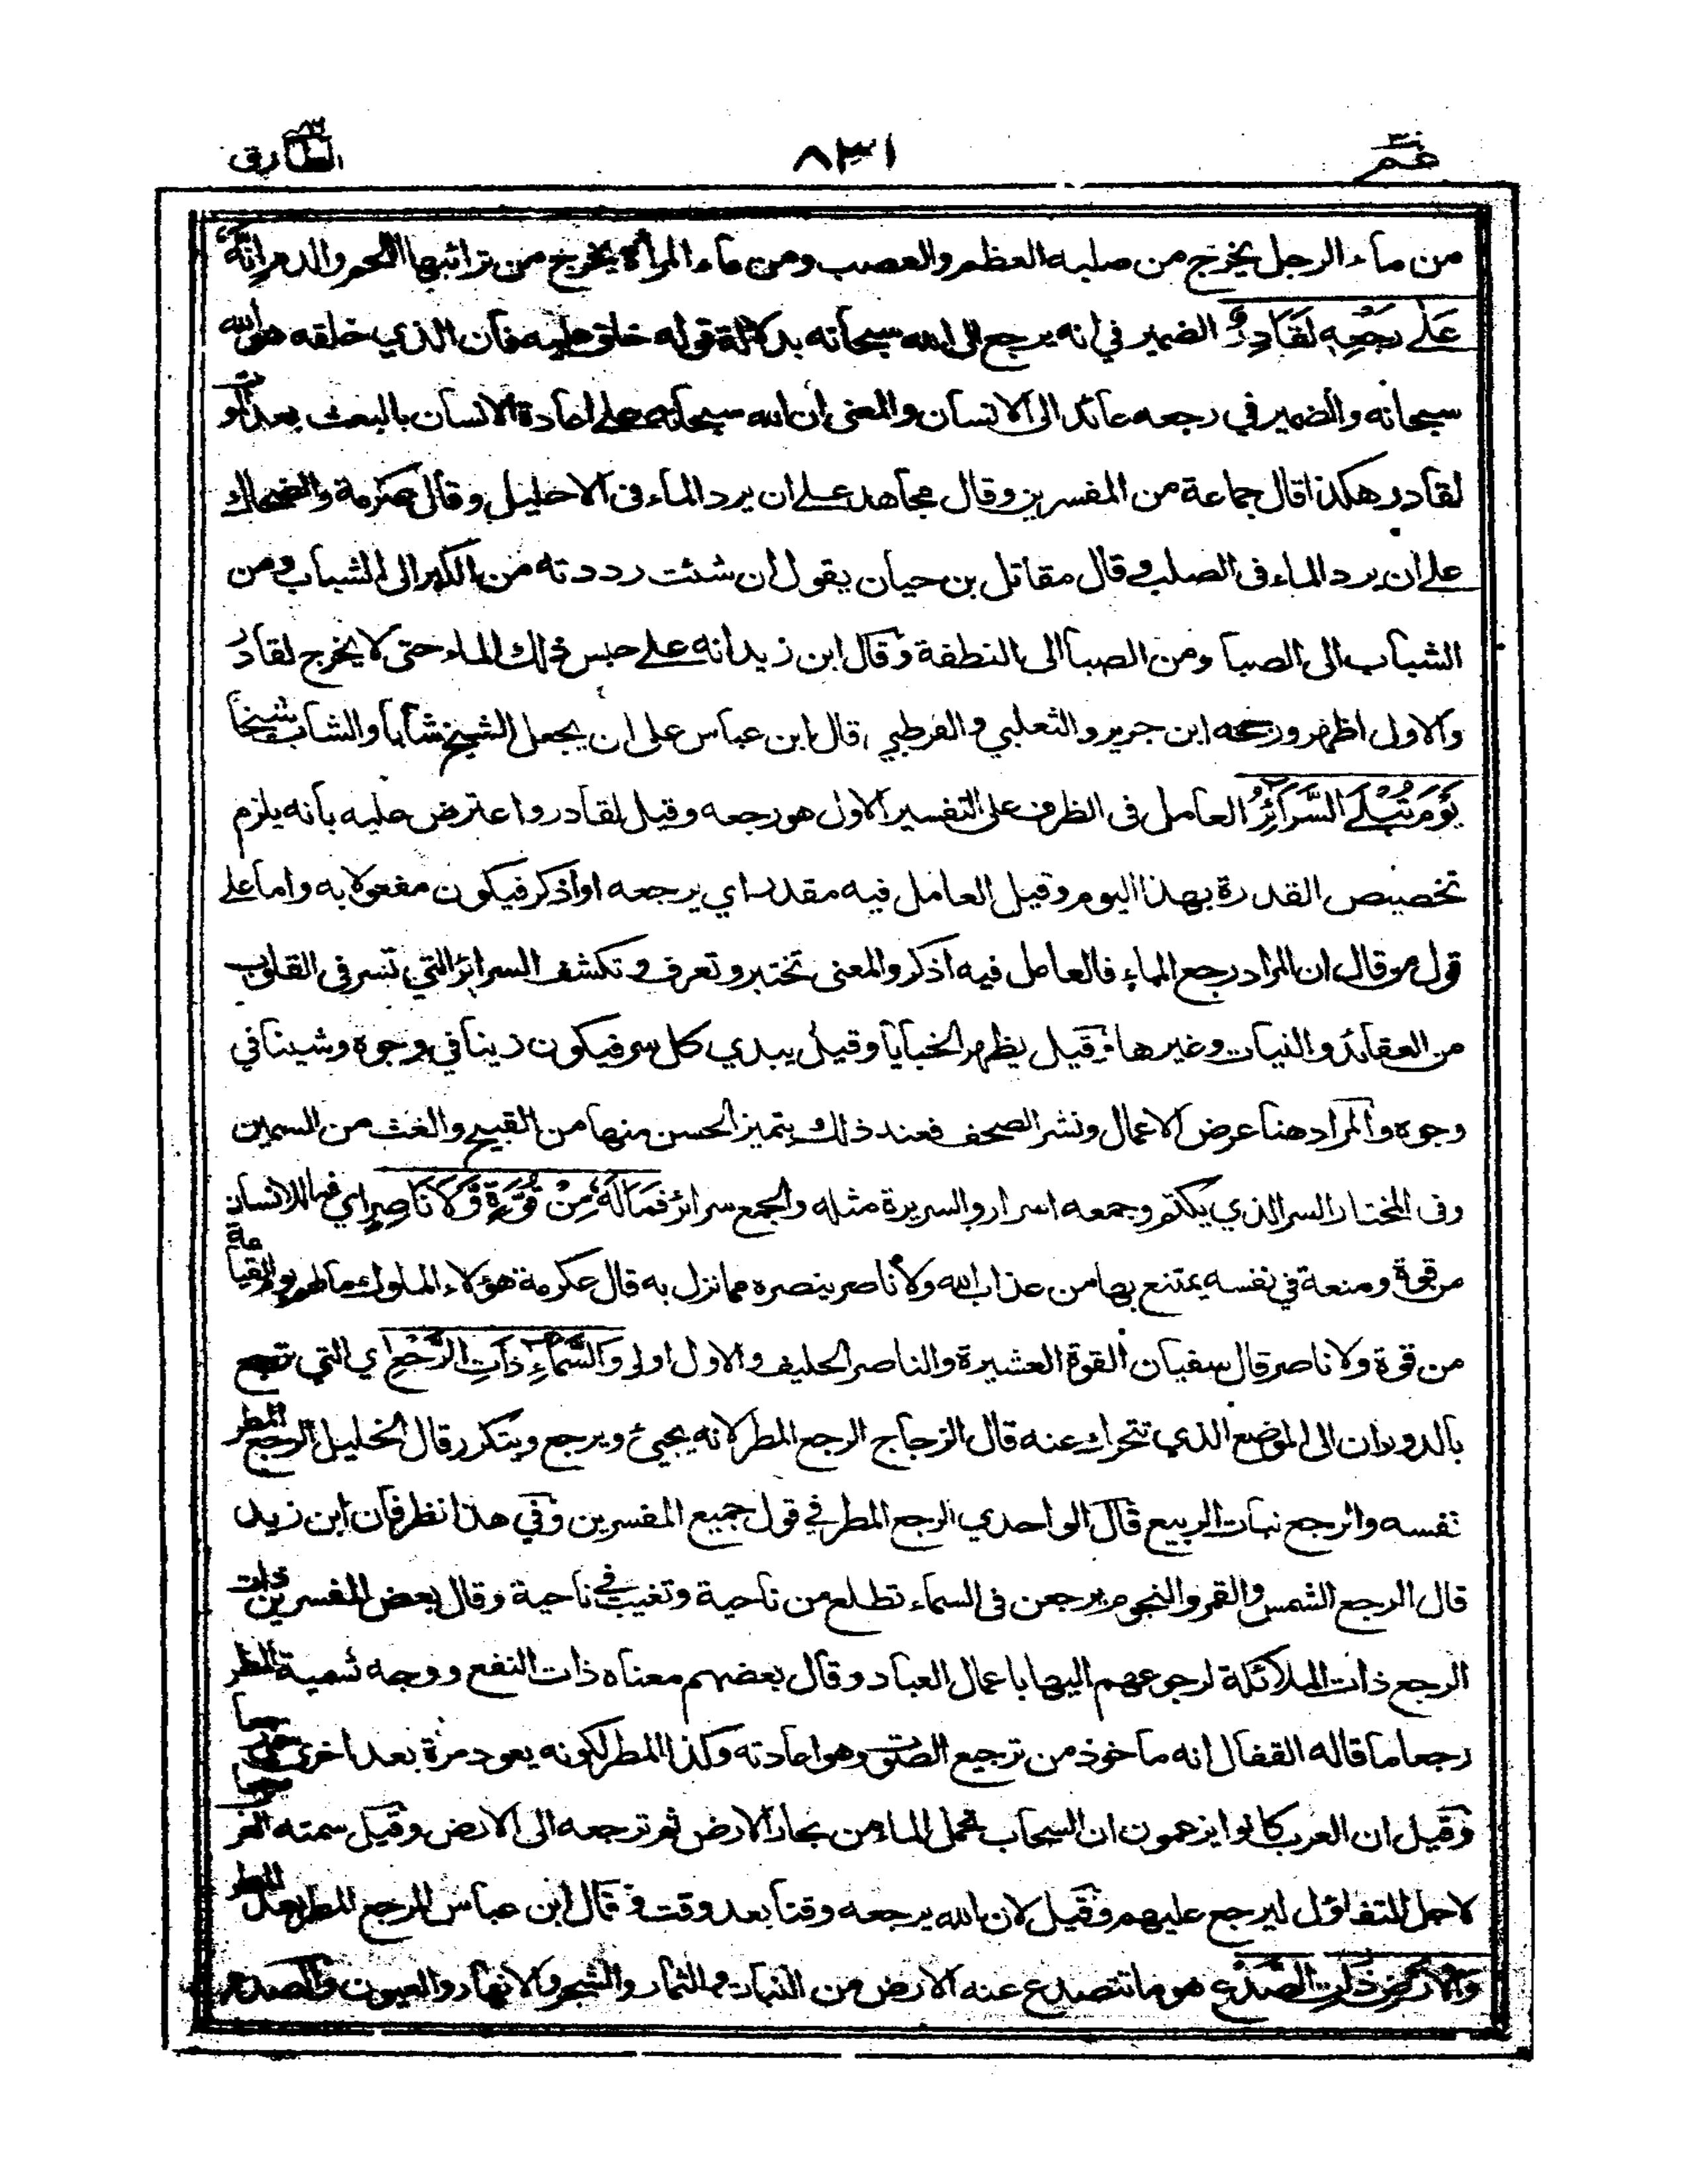 عم
٨٣١
الطارق
من ماء الرجل يخرج من صلبه العظم والعصب ومن ماء المرأة يخرج من ترائبها اللحم والدم إِنَّهُ
عَلَى رَجْعِهِ لَقَادِرٌ الضمير في انه يرجع الى الله سبحانه بدلالة قوله خلق عليه فان الذي خلقه هو الله
سبحانه والضمير في رجعه عائد الى الانسان والمعنى ان الله سبحانه على اعادة الانسان بالبعث بعد الموت
لقادر هكذا قال جماعة من المفسرين وقال مجاهد على ان يرد الماء فى الاحليل وقال عكرمة والضحاك
على ان يرد الماء فى الصلب وقال مقاتل بن حيان يقول ان شئت رددته من الكبر الى الشباب ومن
الشباب الى الصبا ومن الصبا الى النطفة وقال ابن زيد انه على حبس ذلك الماء حتى لا يخرج لقادر
والاول اظهر ورجحه ابن جرير والثعلبي والقرطبي ، قال ابن عباس على ان يجعل الشيخ شابا والشاب شيخا
يَوْمَ تُبْلَى السَّرَائِرُ العامل فى الظرف على التفسير الاول هو رجعه وقيل لقادر واعترض عليه بانه يلزم
تخصيص القدرة بهذا اليوم وقيل العامل فيه مقدر اي يرجعه او اذكر فيكون مفعولا به واما على
قول من قال ان المراد رجع الماء فالعامل فيه اذكر والمعنى تختبر وتعرف وتكشف السرائر التي تسر فى القلوب
من العقائد والنيات وغيرها وقيل يظهر الخبايا وقيل يبدي كل سر فيكون زينا في وجوه وشينا في
وجوه والمراد هنا عرض الاعمال ونشر الصحف فعند ذلك يتميز الحسن منها من القبيح والغث من السمين
وفى المختار السر الذي يكتم وجمعه اسرار والسريرة مثله والجمع سرائر فَمَالَهُ مِنْ قُوَّةٍ وَّلَا نَاصِرٍ اي فما للانسان
من قوة ومنعة في نفسه يمتنع بها من عذاب الله ولا ناصر ينصره مما نزل به قال عكرمة هؤلاء الملوك مالهم يوم القيامة
من قوة ولا ناصر قال سفيان القوة العشيرة والناصر الحليف والاول اولى وَالسَّمَاءِ ذَاتِ الرَّجْعِ اي التي ترجع
بالدوران الى الموضع الذي تتحرك عنه قال الزجاج الرجع المطر لانه يجيئ ويرجع ويتكرر قال الخليل الرجع المطر
نفسه والرجع نبات الربيع قال الواحدي الرجع المطر في قول جميع المفسرين وفي هذا نظر فان ابن زيد
قال الرجع الشمس والقمر والنجوم يرجعن فى السماء تطلع من ناحية وتغيب في ناحية وقال بعض المفسرين ذات
الرجع ذات الملائكة لرجوعهم اليها باعمال العباد وقال بعضهم معناه ذات النفع ووجه تسمية المطر
رجعا ما قاله القفال انه ماخوذ من ترجيع الصوت وهو اعادته وكذا المطر لكونه يعود مرة بعد اخرى سمي رجعا
وقيل ان العرب كانوا يزعمون ان السحاب تحمل الماء من بحار الارض ثم ترجعه الى الارض وقيل سمته العرب رجعا
لاجل التفاؤل ليرجع عليهم وقيل لان الله يرجعه وقتا بعد وقت وقال ابن عباس الرجع المطر بعد المطر
وَالْأَرْضِ ذَاتِ الصَّدْعِ هو ما تتصدع عنه الارض من النبات والثمار والشجر والانهار والعيون والصدع